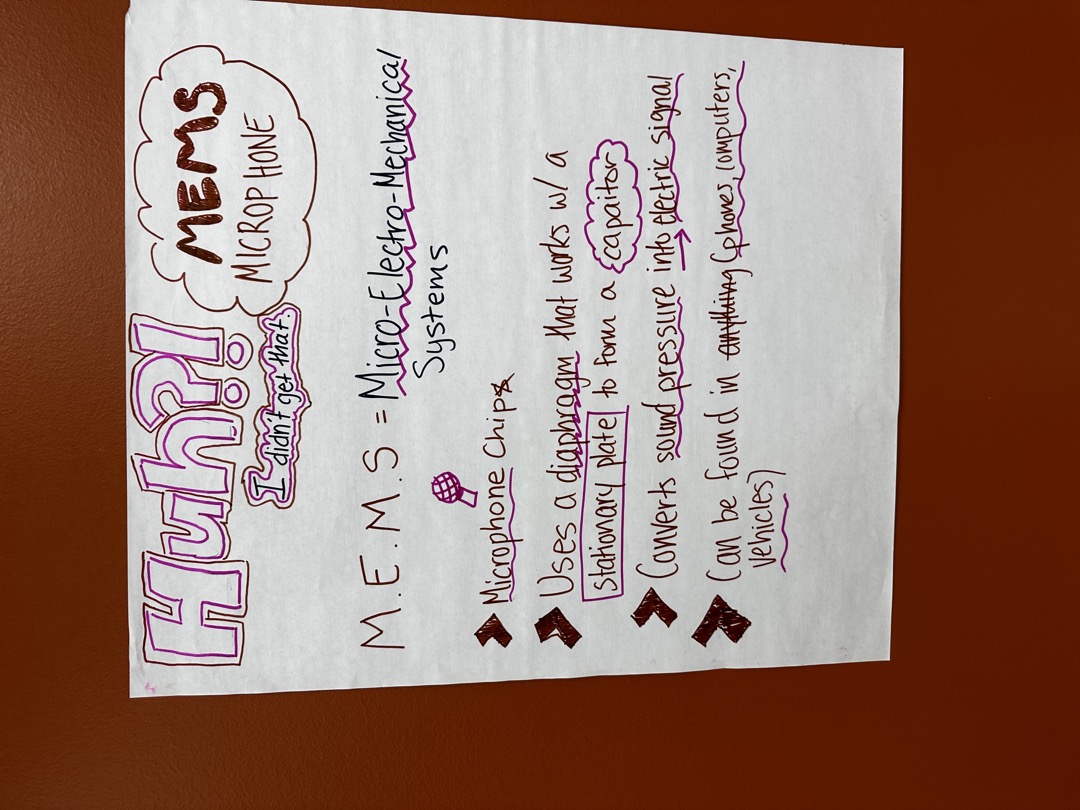 Huh?!
I didn't get that.
MEMS
MICROPHONE
M.E.M.S = Micro-Electro-Mechanical
Systems
Microphone Chips
Uses a diaphragm that works w/ a
stationary plate to form a capaitor
Converts sound pressure into electric signal
Can be found in anything (phones, computers,
vehicles)